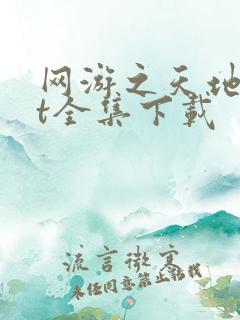 网游之天地
t全集下载
流言微宽
未经同意禁止转载